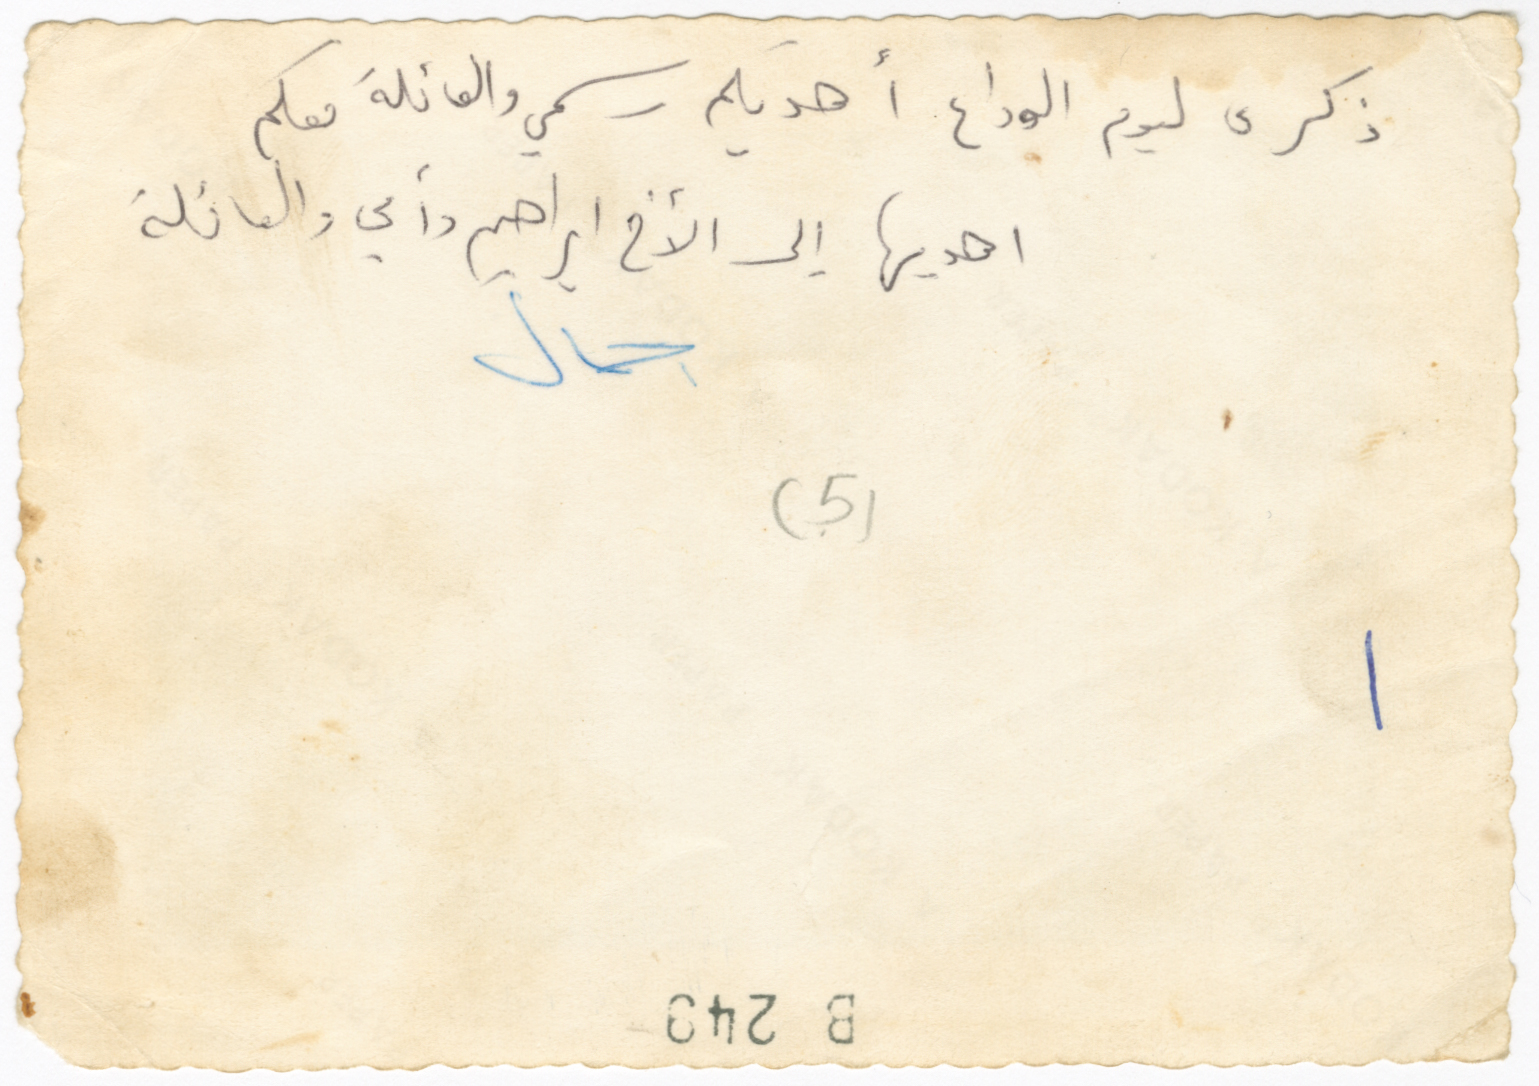 ذكرى ليوم الوداع أهديكم رسمي والعائلة معكم
اهديها إلى الأخ ابراهيم وأمي والعائلة
جمال
(5)
B 243